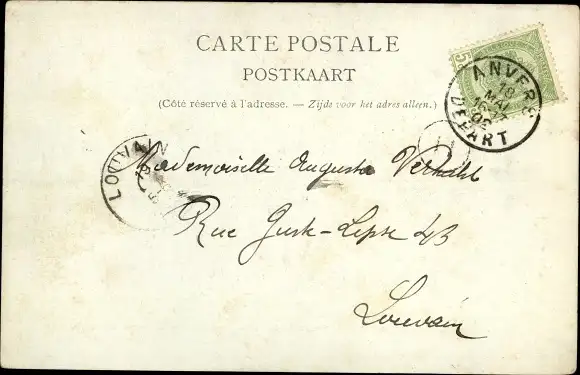 CARTE POSTALE
POSTKAART
(Côté réservé à l'adresse. — Zijde voor het adres alleen.)
ANVERS
18
MAI
16-17
02
DEPART
LOUVAIN
Mademoiselle Augusta
Rue Juste-Lipse 43
Louvain